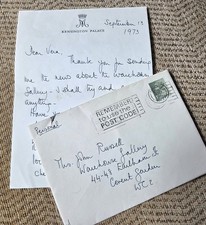 KENSINGTON PALACE
September 13
1973
Dear Vera,
Thank you for sending
me the news about the Warehouse
Gallery - I shall try and
anything.
Personal
REMEMBER
to use the
POST CODE
Mrs. Dan Russell
Warehouse Gallery
Earlham St
Covent Garden
W.C.2